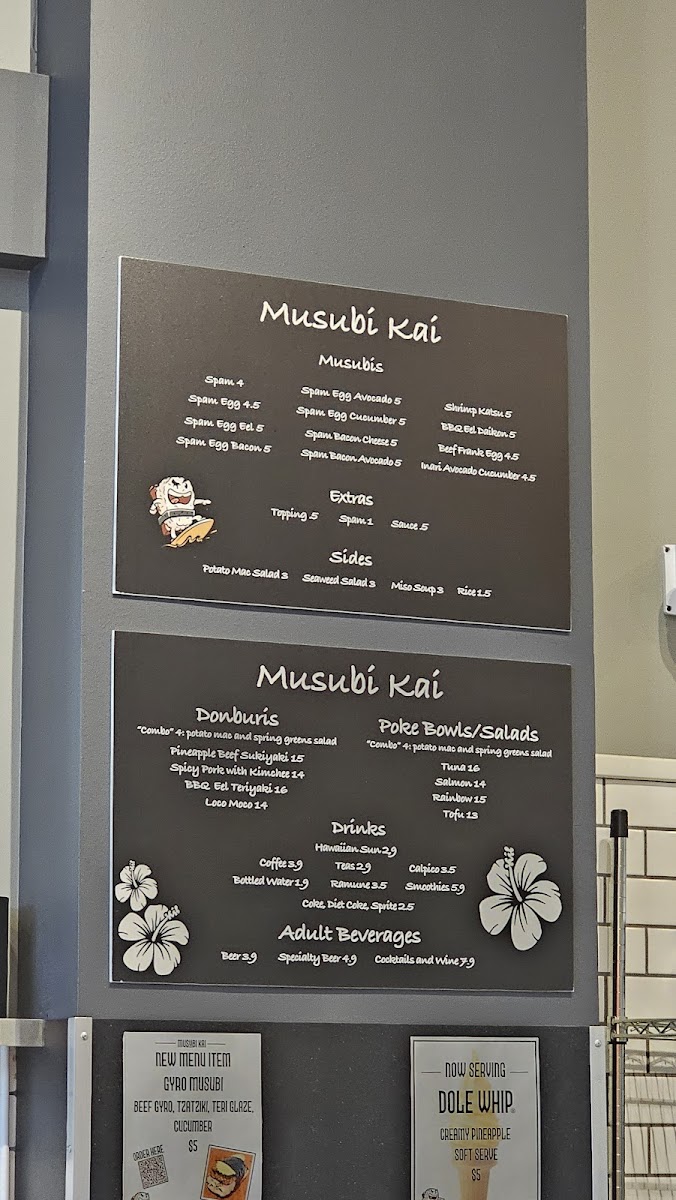 Musubi Kai
Musubis
Spam 4
Spam Egg 4.5
Spam Egg Eel 5
Spam Egg Bacon 5
Spam Egg Avocado 5
Spam Egg Cucumber 5
Spam Bacon Cheese 5
Spam Bacon Avocado 5
Shrimp Katsu 5
BBQ Eel Daikon 5
Beef Frank Egg 4.5
Inari Avocado Cucumber 4.5
Extras
Topping .5 Spam 1 Sauce .5
Sides
Potato Mac Salad 3 Seaweed Salad 3 Miso Soup 3 Rice 1.5
Musubi Kai
Donburis
"Combo" 4: potato mac and spring greens salad
Pineapple Beef Sukiyaki 15
Spicy Pork with Kimchee 14
BBQ Eel Teriyaki 16
Loco Moco 14
Poke Bowls/Salads
"Combo" 4: potato mac and spring greens salad
Tuna 16
Salmon 14
Rainbow 15
Tofu 13
Drinks
Hawaiian Sun 2.9
Coffee 3.9 Teas 2.9 Calpico 3.5
Bottled Water 1.9 Ramune 3.5 Smoothies 5.9
Coke, Diet Coke, Sprite 2.5
Adult Beverages
Beer 3.9 Specialty Beer 4.9 Cocktails and Wine 7.9
MUSUBI KAI
NEW MENU ITEM
GYRO MUSUBI
BEEF GYRO, TZATZIKI, TERI GLAZE,
CUCUMBER
$5
ORDER HERE
NOW SERVING
DOLE WHIP®
CREAMY PINEAPPLE
SOFT SERVE
$5